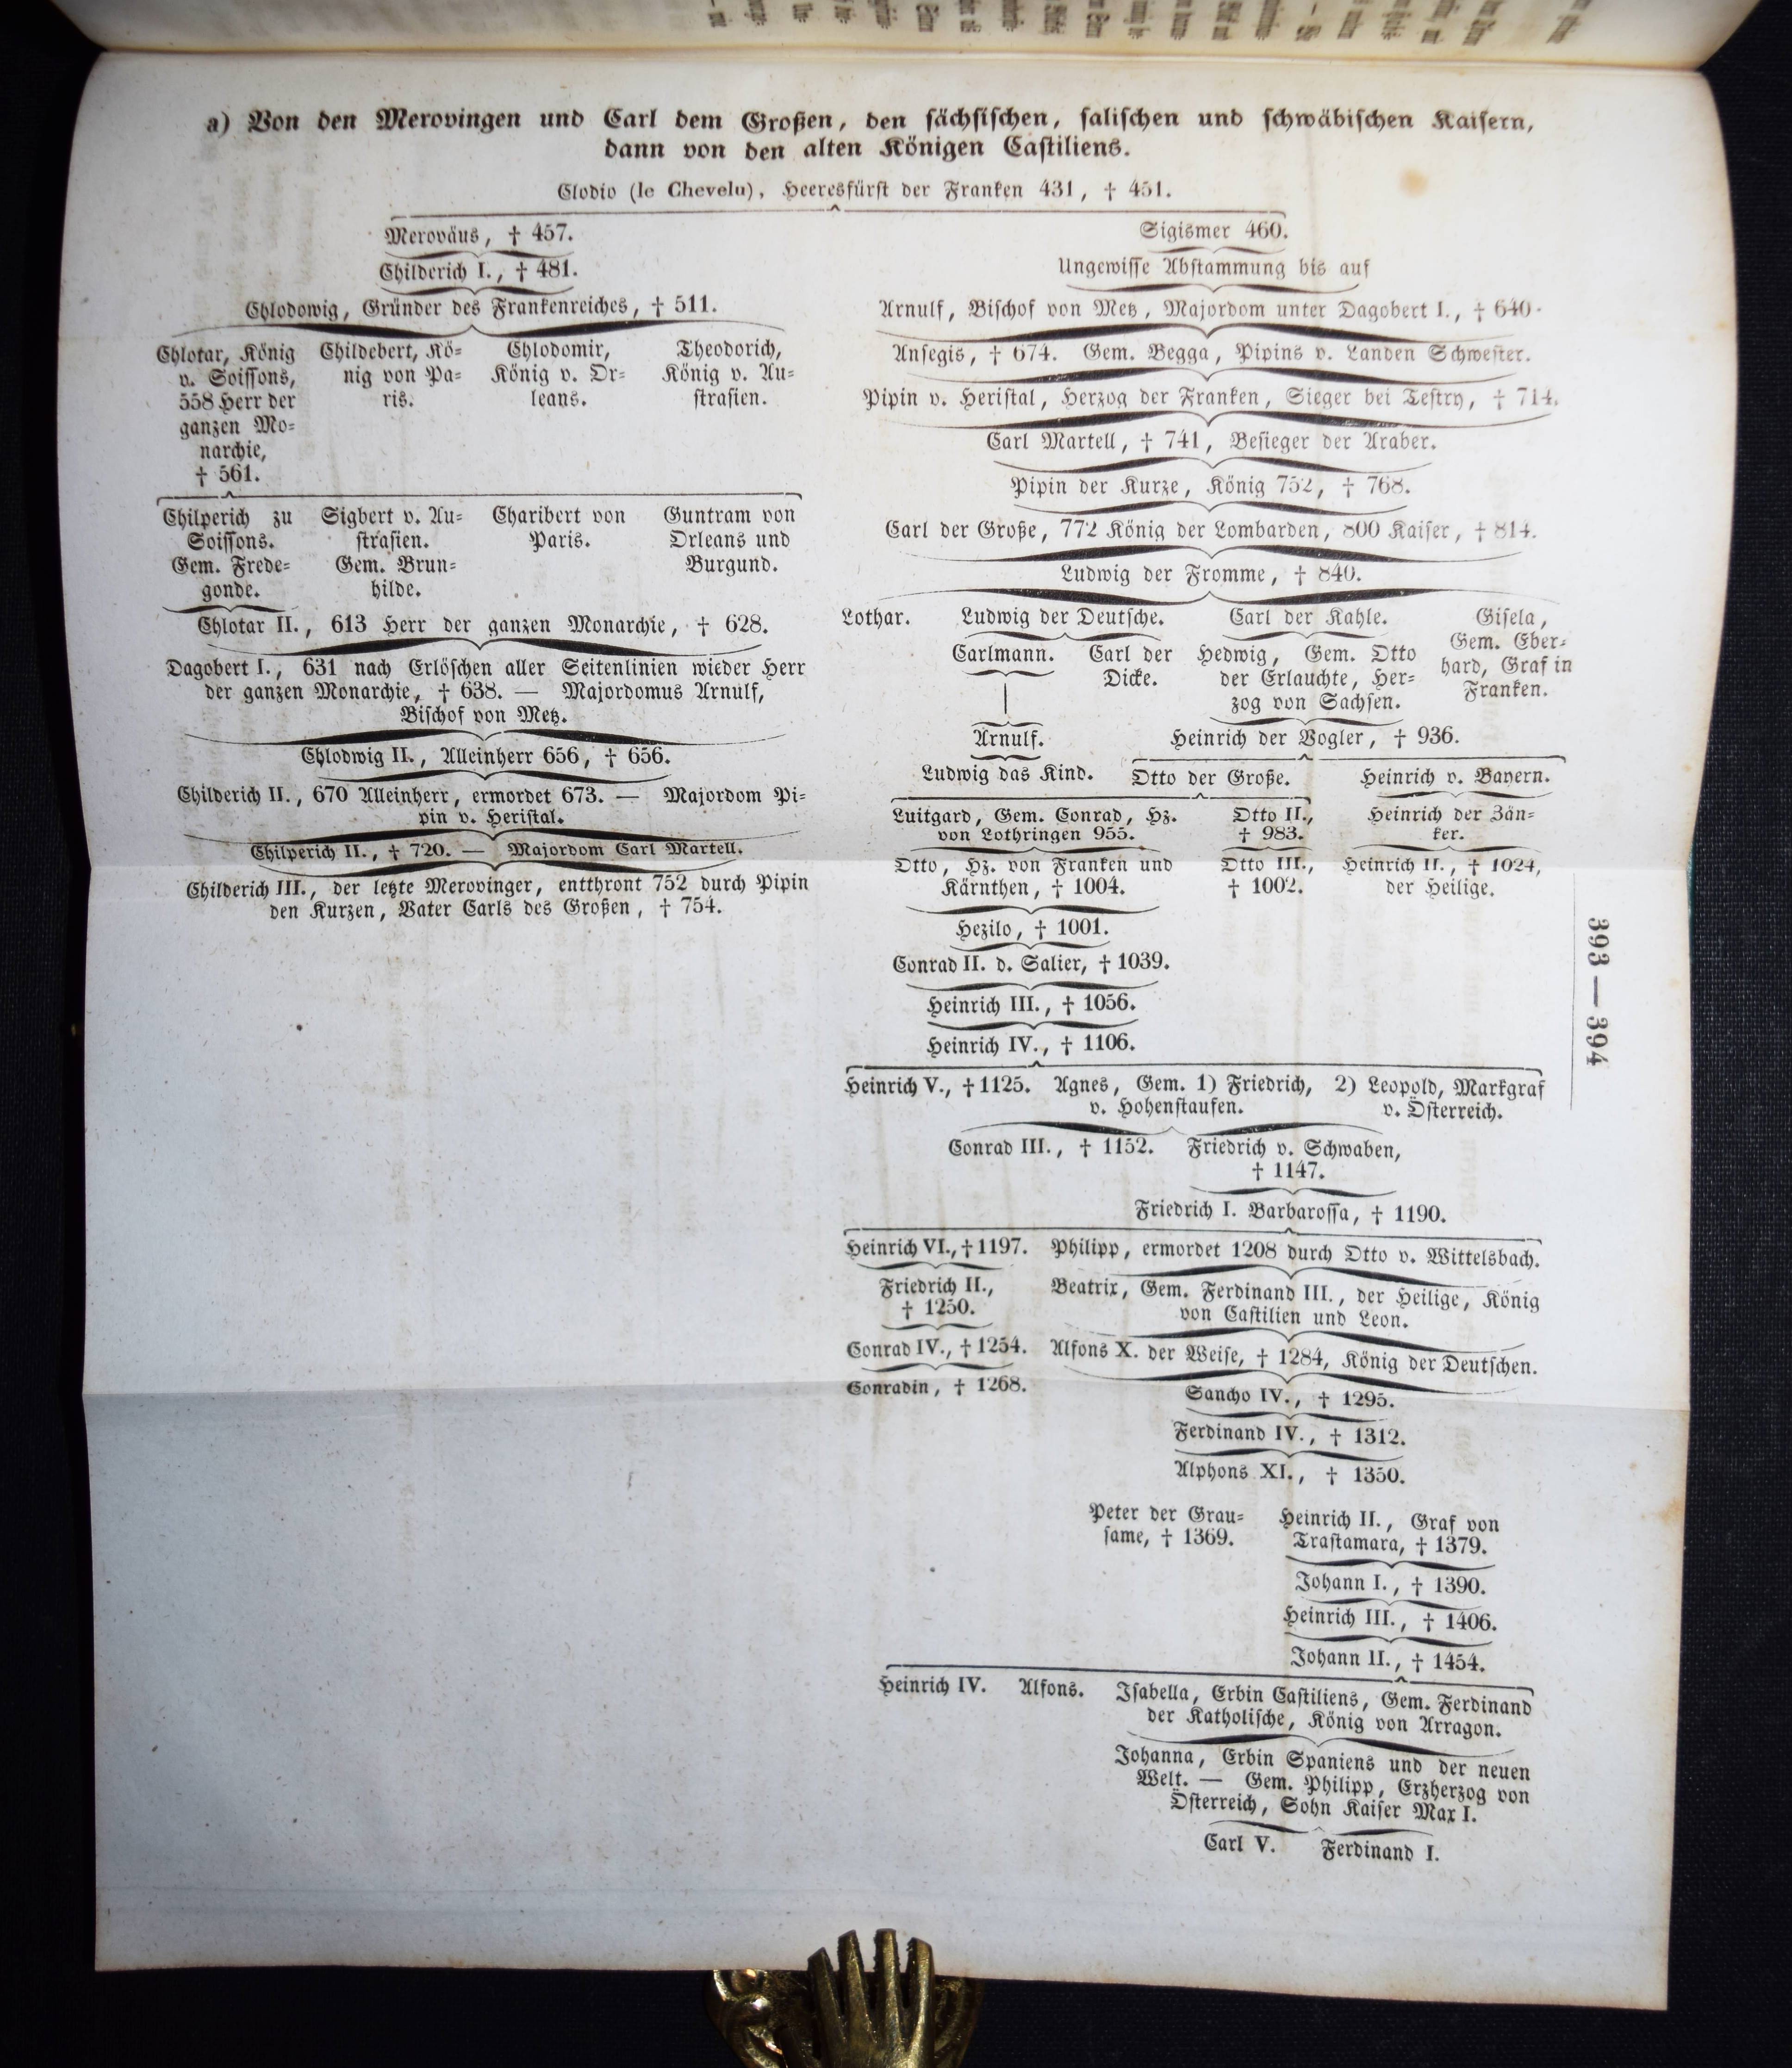 a) Von den Merovingen und Carl dem Großen, den sächsischen, salischen und schwäbischen Kaisern,
dann von den alten Königen Castiliens.
Clodio (le Chevelu), Heeresfürst der Franken 431, † 451.
Meroväus, † 457.
Childerich I., † 481.
Chlodowig, Gründer des Frankenreiches, † 511.
Chlotar, König
v. Soissons,
558 Herr der
ganzen Mo-
narchie,
† 561.
Childebert, Kö-
nig von Pa-
ris.
Chlodomir,
König v. Or-
leans.
Theodorich,
König v. Au-
strasien.
Chilperich zu
Soissons.
Gem. Frede-
gonde.
Sigbert v. Au-
strasien.
Gem. Brun-
hilde.
Charibert von
Paris.
Guntram von
Orleans und
Burgund.
Chlotar II., 613 Herr der ganzen Monarchie, † 628.
Dagobert I., 631 nach Erlöschen aller Seitenlinien wieder Herr
der ganzen Monarchie, † 638. — Majordomus Arnulf,
Bischof von Metz.
Chlodwig II., Alleinherr 656, † 656.
Childerich II., 670 Alleinherr, ermordet 673. — Majordom Pi-
pin v. Heristal.
Chilperich II., † 720. — Majordom Carl Martell.
Childerich III., der letzte Merovinger, entthront 752 durch Pipin
den Kurzen, Vater Carls des Großen, † 754.
Sigismer 460.
Ungewisse Abstammung bis auf
Arnulf, Bischof von Metz, Majordom unter Dagobert I., † 640.
Ansegis, † 674. Gem. Begga, Pipins v. Landen Schwester.
Pipin v. Heristal, Herzog der Franken, Sieger bei Testry, † 714.
Carl Martell, † 741, Besieger der Araber.
Pipin der Kurze, König 752, † 768.
Carl der Große, 772 König der Lombarden, 800 Kaiser, † 814.
Ludwig der Fromme, † 840.
Lothar.
Ludwig der Deutsche.
Carl der Kahle.
Gisela,
Gem. Eber-
hard, Graf in
Franken.
Carlmann.
Carl der
Dicke.
Hedwig, Gem. Otto
der Erlauchte, Her-
zog von Sachsen.
Arnulf.
Heinrich der Vogler, † 936.
Ludwig das Kind.
Otto der Große.
Heinrich v. Bayern.
Luitgard, Gem. Conrad, Hz.
von Lothringen 955.
Otto II.,
† 983.
Heinrich der Zän-
ker.
Otto, Hz. von Franken und
Kärnthen, † 1004.
Otto III.,
† 1002.
Heinrich II., † 1024,
der Heilige.
Hezilo, † 1001.
Conrad II. d. Salier, † 1039.
Heinrich III., † 1056.
Heinrich IV., † 1106.
393 — 394
Heinrich V., † 1125.
Agnes, Gem. 1) Friedrich, 2) Leopold, Markgraf
v. Hohenstaufen. v. Österreich.
Conrad III., † 1152.
Friedrich v. Schwaben,
† 1147.
Friedrich I. Barbarossa, † 1190.
Heinrich VI., † 1197.
Philipp, ermordet 1208 durch Otto v. Wittelsbach.
Friedrich II.,
† 1250.
Beatrix, Gem. Ferdinand III., der Heilige, König
von Castilien und Leon.
Conrad IV., † 1254.
Alfons X. der Weise, † 1284, König der Deutschen.
Conradin, † 1268.
Sancho IV., † 1295.
Ferdinand IV., † 1312.
Alphons XI., † 1350.
Peter der Grau-
same, † 1369.
Heinrich II., Graf von
Trastamara, † 1379.
Johann I., † 1390.
Heinrich III., † 1406.
Johann II., † 1454.
Heinrich IV.
Alfons.
Isabella, Erbin Castiliens, Gem. Ferdinand
der Katholische, König von Arragon.
Johanna, Erbin Spaniens und der neuen
Welt. — Gem. Philipp, Erzherzog von
Österreich, Sohn Kaiser Max I.
Carl V. Ferdinand I.